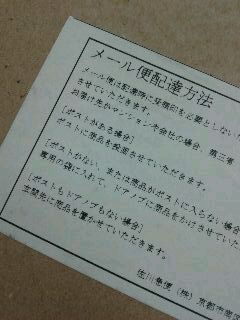 メール便配達方法
メール便は配達時に受領印を必要としない
させていただきます。
お届け先がマンションや会社の場合、第三者
[ポストがある場合]
ポストに商品を投函させていただきます。
[ポストがない、または商品がポストに入らない場合
専用の袋に入れて、ドアノブに商品をかけさせていた
[ポストもドアノブもない場合]
玄関先に商品を置かせていただきます。
佐川急便(株)京都市南区